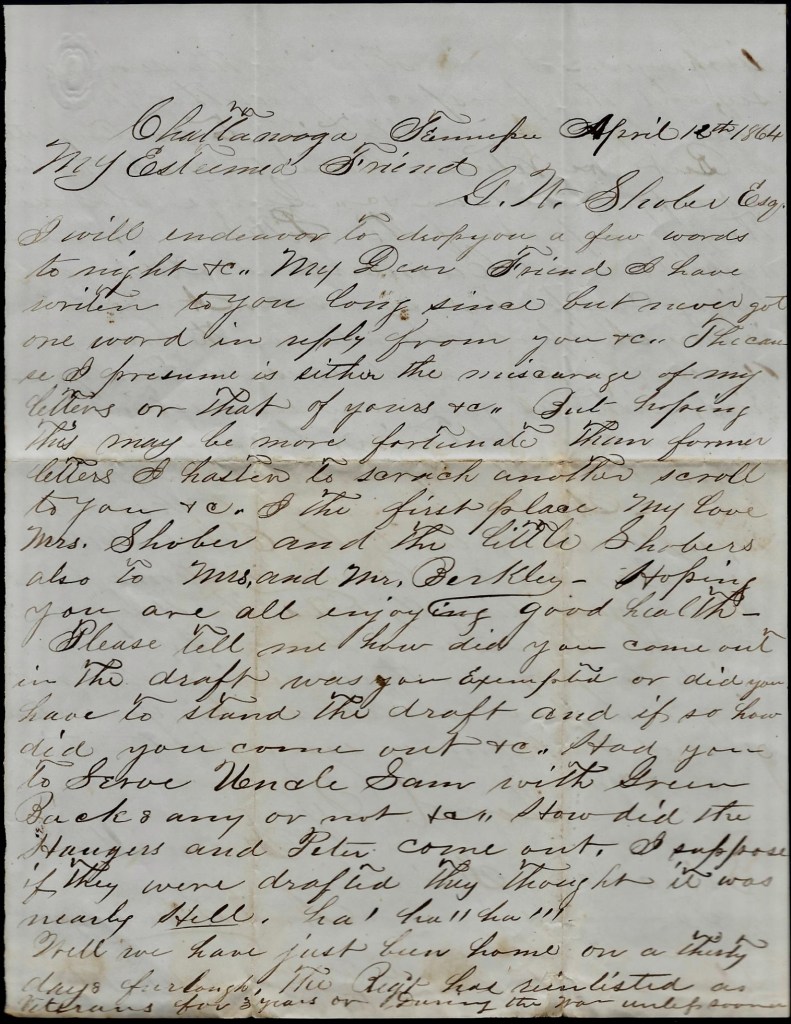 Chattanooga Tennessee April 12th 1864
My Esteemed Friend
G. W. Shober Esq.
I will endeavor to drop you a few words
to night &c,, My Dear Friend I have
writen to you long since but never got
one word in reply from you &c,, The cau
se I presume is either the miscarage of my
letters or that of yours &c,, But hoping
this may be more fortunate than former
letters I hasten to scrach another scroll
to you &c,, I the first place my love
Mrs. Shober and the little Shobers
also to Mrs, and Mr. Berkley – Hoping
you are all enjoying good health –
Please tell me how did you come out
in the draft was you Exempted or did you
have to stand the draft and if so how
did you come out &c,, Had you
to Serve Uncle Sam with Green
Backs any or not &c,, How did the
Haugers and Peter come out, I suppose
if they were drafted they thought it was
nearly Hell. ha! ha!! ha!!!
Well we have just been home on a thirty
days furlough, The Regt has reinlisted as
Veterans for 3 years or During the War unless sooner